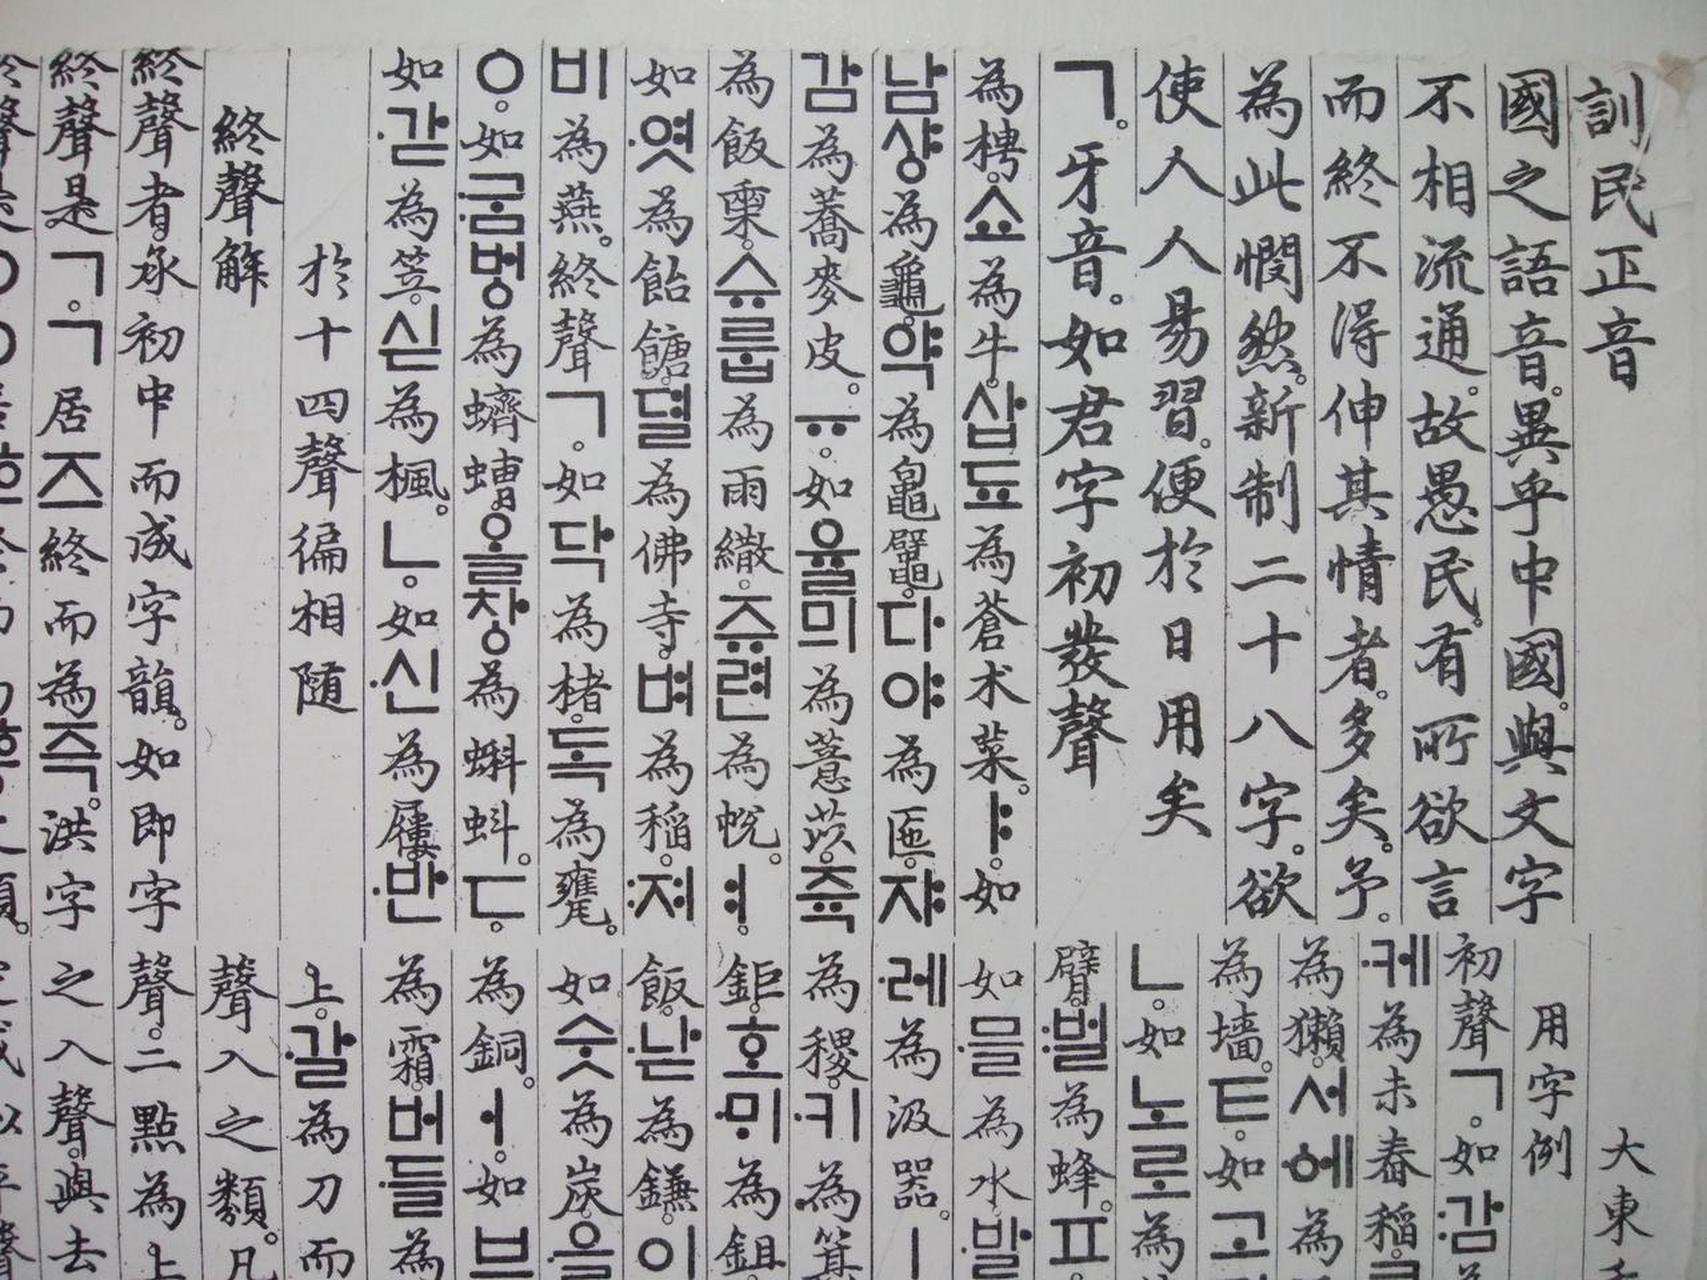 訓民正音
國之語音。異乎中國。與文字
不相流通。故愚民。有所欲言
而終不得伸其情者。多矣。予。
為此憫然。新制二十八字。欲
使人人易習。便於日用矣
ㄱ。牙音。如君字初發聲
為梬。쇼為牛。삽됴為蒼朮菜。ㅑ。如
남샹為龜。약為𪓟鼊。다야為匜。쟈
감為蕎麥皮。ㅠ。如율믜為薏苡。쥭
為飯䉛。슈룹為雨繖。쥬련為帨。ㅕ。
如엿為飴餹。뎔為佛寺。벼為稻。져
비為燕。終聲ㄱ。如닥為楮。독為甕。
ㆁ。如굼벙為蠐螬。올창為蝌蚪。ㄷ。
如갇為笠。싣為楓。ㄴ。如신為屨。반
於十四聲徧相隨
終聲解
終聲者。承初中而成字韻。如即字
終聲是ㄱ。ㄱ居즈終而為즉。洪字
大東
用字例
初聲ㄱ。如감
케為未舂稻。
為獺。서에為
為墻。ㅌ。如고
ㄴ。如노로為
臂。벌為蜂。ㅍ。
如믈為水。발
레為汲器。ㅣ
為稷。키為箕
鉅。호미為鉏
飯。낟為鎌。이
如숫為炭。울
為銅。ㅓ。如브
為霜。버들為
上。갈為刀而
聲入之類。凡
聲。二點為上
之入聲。與去